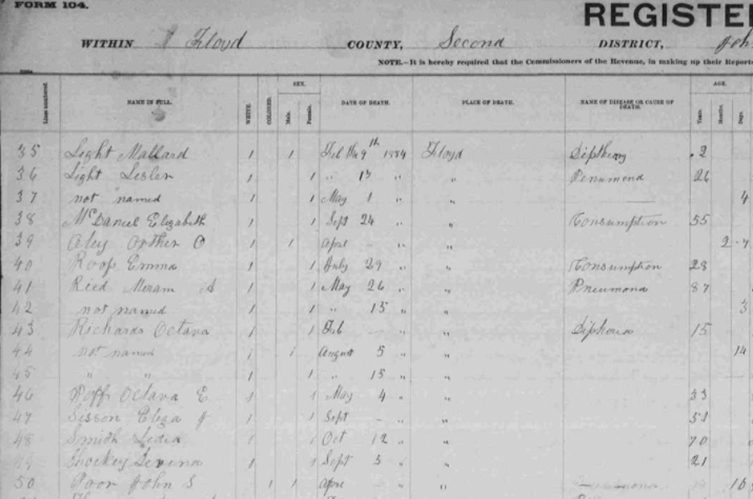 FORM 104.
REGISTE
WITHIN Floyd COUNTY, Second DISTRICT,
NOTE.—It is hereby required that the Commissioners of the Revenue, in making up their Report
SEX. AGE.
Lines numbered NAME IN FULL. WHITE. COLORED. Male. Female. DATE OF DEATH. PLACE OF DEATH. NAME OF DISEASE OR CAUSE OF DEATH. Years. Months. Days.
35 Light Mallard 1 1 Feb 9th 1884 Floyd 2
36 Light 1 1 " 13 " " 26
37 not named 1 1 May 1 " " 4
38 McDaniel Elizabeth 1 1 Sept 24 " Consumption 55
39 Aley Orther O 1 1 April - " " 2 7
40 Roop Emma 1 1 July 29 " " Consumption 28
41 Reed S 1 1 May 26 " " Pneumona 87
42 not named 1 " 15 " " 3
43 Richards Octava 1 1 Feb - " 15
44 not named 1 1 August 5 " " 14
45 " " 1 1 " 15 " "
46 Poff Octava E 1 1 May 4 " " 33
47 Sisson Eliza J 1 1 Sept - " "
48 Smith Lidia 1 1 Oct 12 " " 70
49 Shockey 1 1 Sept 5 " " 21
50 Poor John S 1 1 April " "